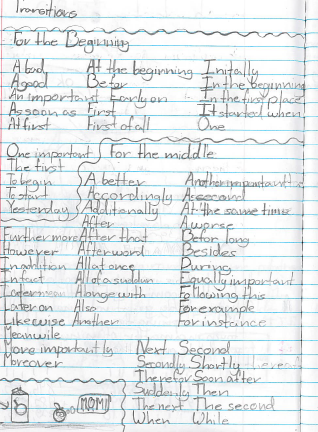 Transitions
For the Beginning
A bad At the beginning Initally
A good Befor In the beginning
An important Early on In the first place
As soon as First It started when
At first First of all One
One important For the middle
The first
To begin A better Another important
To start Accordingly A second
Yesterday Additionally At the same time
After A worse
Further more After that Befor long
However Afterword Besides
In addition All at once During
In fact All of a suddun Equally important
Later Alonge with Following this
Later on Also For example
Likewise Another For instance
Meanwile
More importantly Next Second
Moreover Secondly Shortly
Therefor Soon after
Suddenly Then
The next The second
When While
MOM!